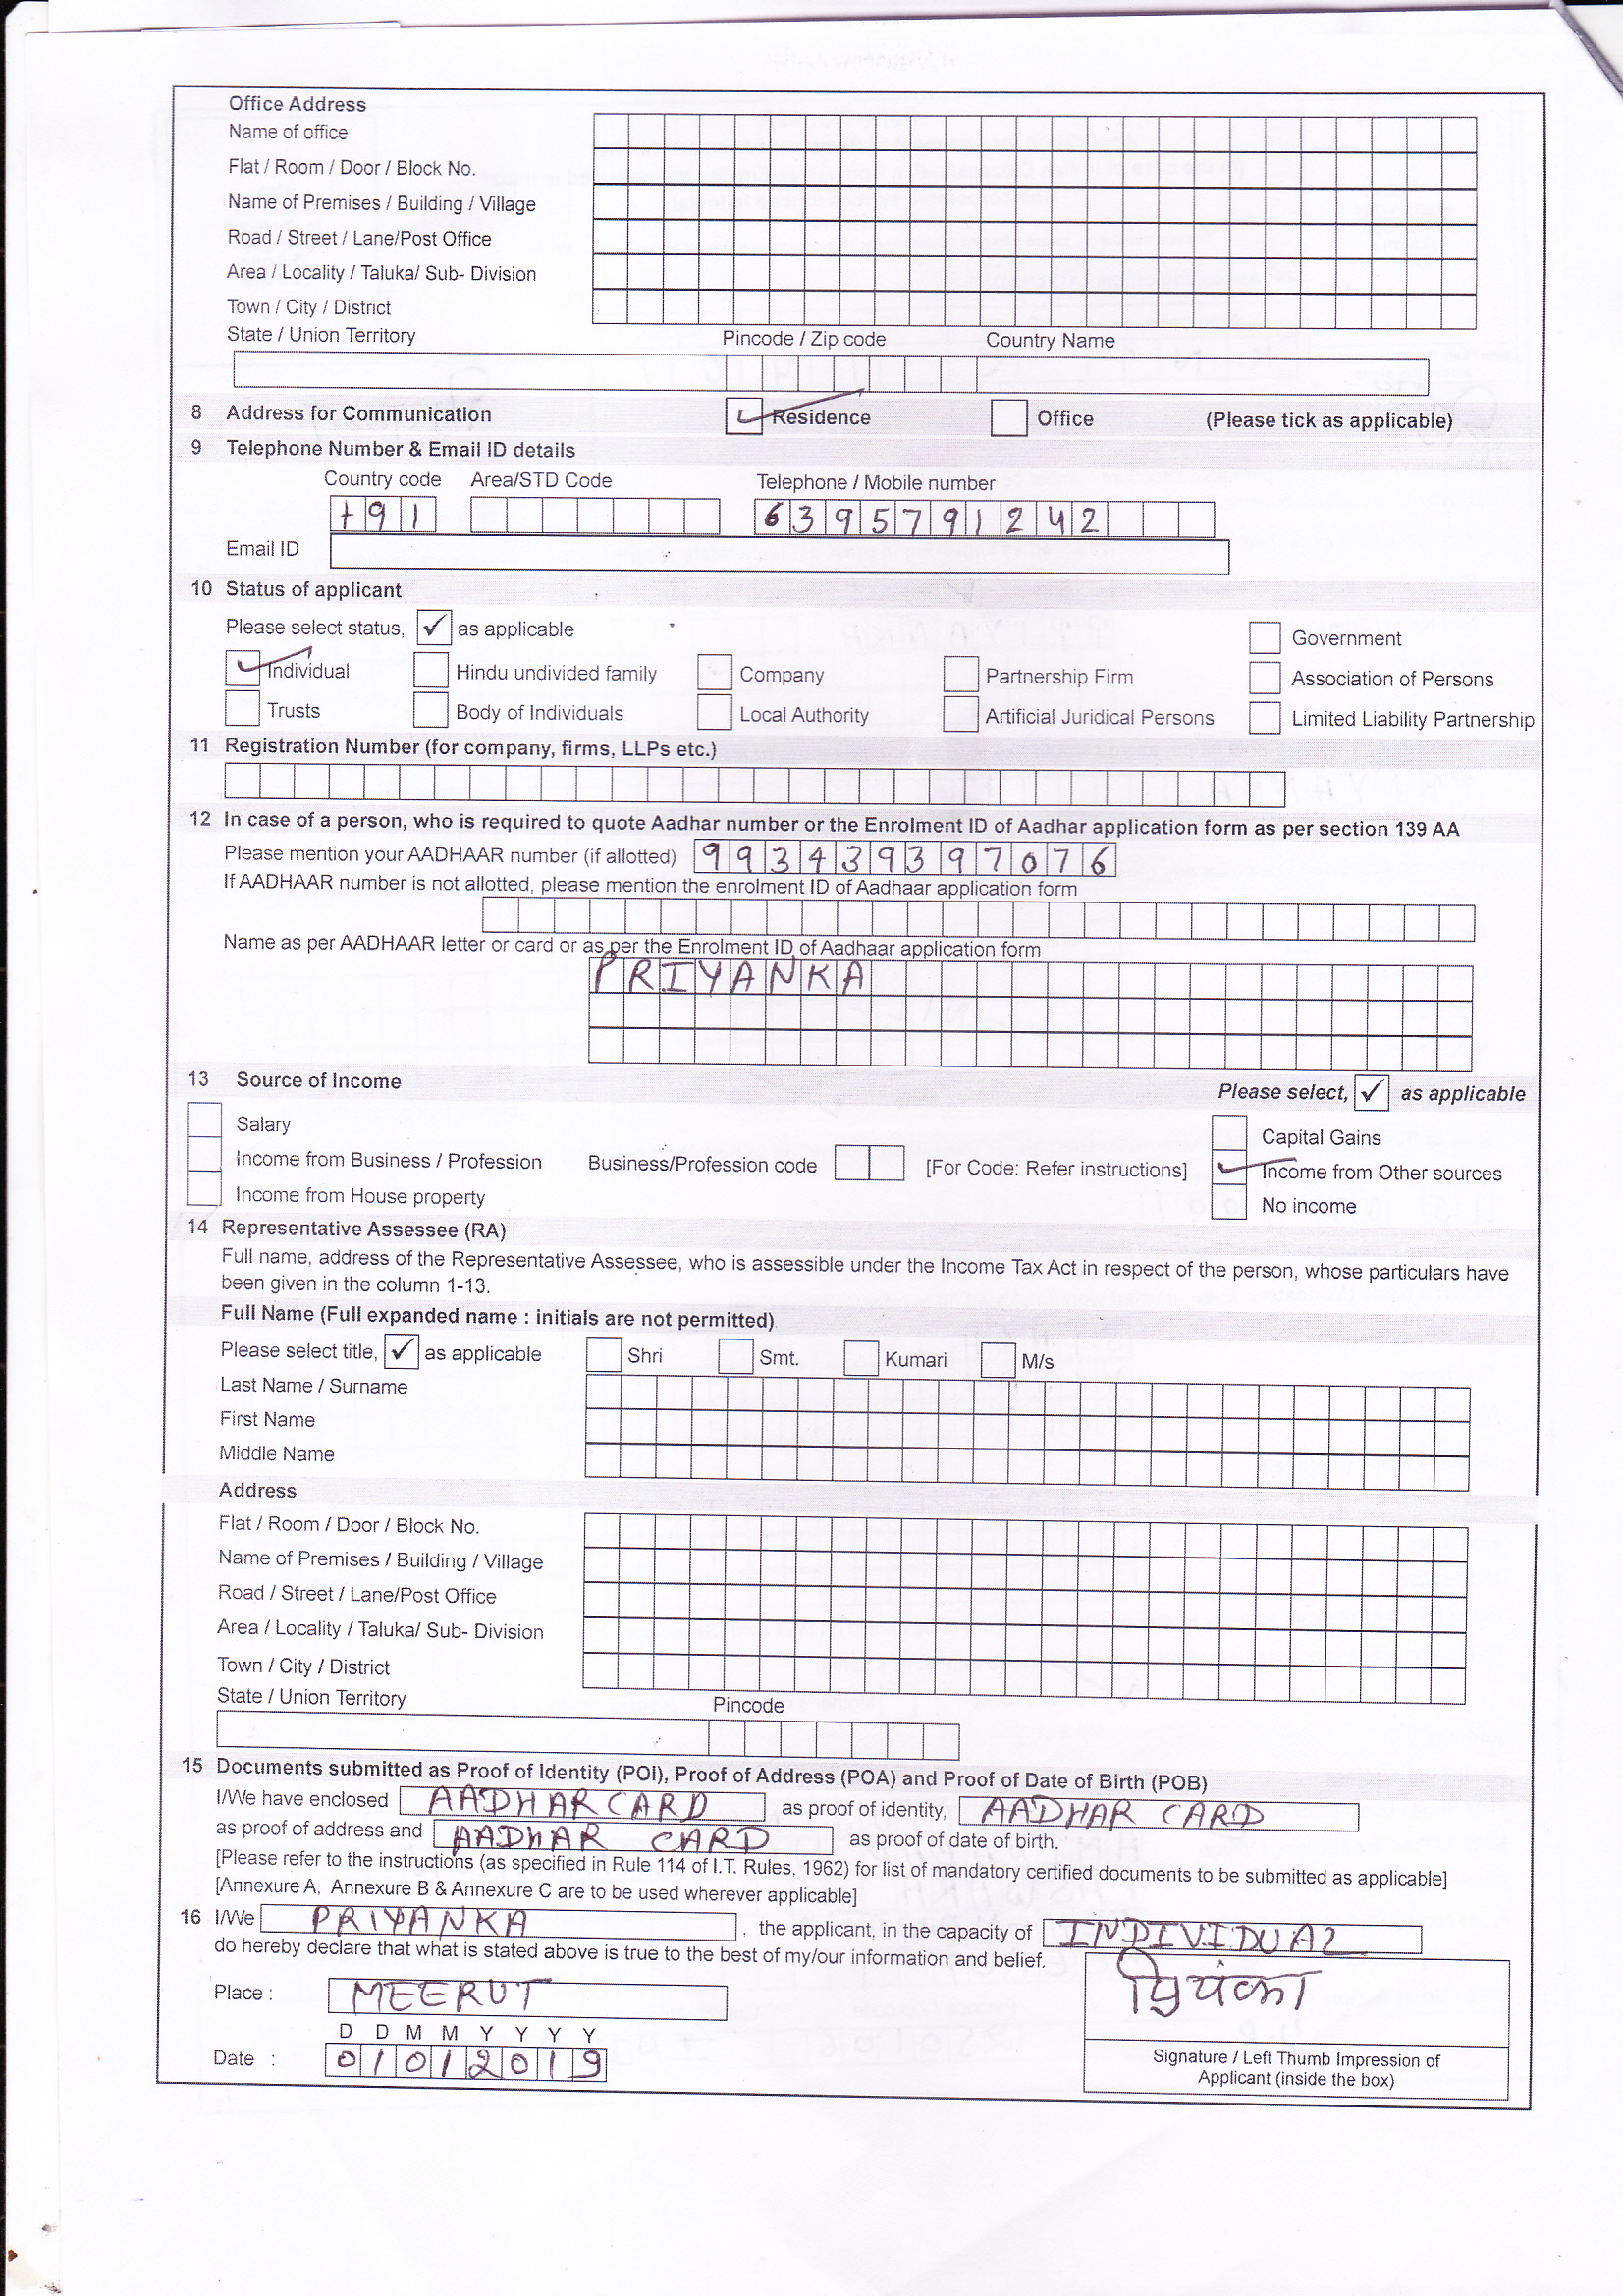 Office Address
Name of office
Flat / Room / Door / Block No.
Name of Premises / Building / Village
Road / Street / Lane/Post Office
Area / Locality / Taluka/ Sub- Division
Town / City / District
State / Union Territory Pincode / Zip code Country Name
8 Address for Communication ✓ Residence Office (Please tick as applicable)
9 Telephone Number & Email ID details
Country code Area/STD Code Telephone / Mobile number
+91 6395791242
Email ID
10 Status of applicant
Please select status, ✓ as applicable Government
✓ Individual Hindu undivided family Company Partnership Firm Association of Persons
Trusts Body of Individuals Local Authority Artificial Juridical Persons Limited Liability Partnership
11 Registration Number (for company, firms, LLPs etc.)
12 In case of a person, who is required to quote Aadhar number or the Enrolment ID of Aadhar application form as per section 139 AA
Please mention your AADHAAR number (if allotted) 993439397076
If AADHAAR number is not allotted, please mention the enrolment ID of Aadhaar application form
Name as per AADHAAR letter or card or as per the Enrolment ID of Aadhaar application form
PRIYANKA
13 Source of Income Please select, ✓ as applicable
Salary Capital Gains
Income from Business / Profession Business/Profession code [For Code: Refer instructions] ✓ Income from Other sources
Income from House property No income
14 Representative Assessee (RA)
Full name, address of the Representative Assessee, who is assessible under the Income Tax Act in respect of the person, whose particulars have
been given in the column 1-13.
Full Name (Full expanded name : initials are not permitted)
Please select title, ✓ as applicable Shri Smt. Kumari M/s
Last Name / Surname
First Name
Middle Name
Address
Flat / Room / Door / Block No.
Name of Premises / Building / Village
Road / Street / Lane/Post Office
Area / Locality / Taluka/ Sub- Division
Town / City / District
State / Union Territory Pincode
15 Documents submitted as Proof of Identity (POI), Proof of Address (POA) and Proof of Date of Birth (POB)
I/We have enclosed AADHAR CARD as proof of identity, AADHAR CARD
as proof of address and AADHAR CARD as proof of date of birth.
[Please refer to the instructions (as specified in Rule 114 of I.T. Rules, 1962) for list of mandatory certified documents to be submitted as applicable]
[Annexure A, Annexure B & Annexure C are to be used wherever applicable]
16 I/We PRIYANKA , the applicant, in the capacity of INDIVIDUAL
do hereby declare that what is stated above is true to the best of my/our information and belief.
प्रियंका
Place : MEERUT
D D M M Y Y Y Y
Date : 01012019
Signature / Left Thumb Impression of
Applicant (inside the box)